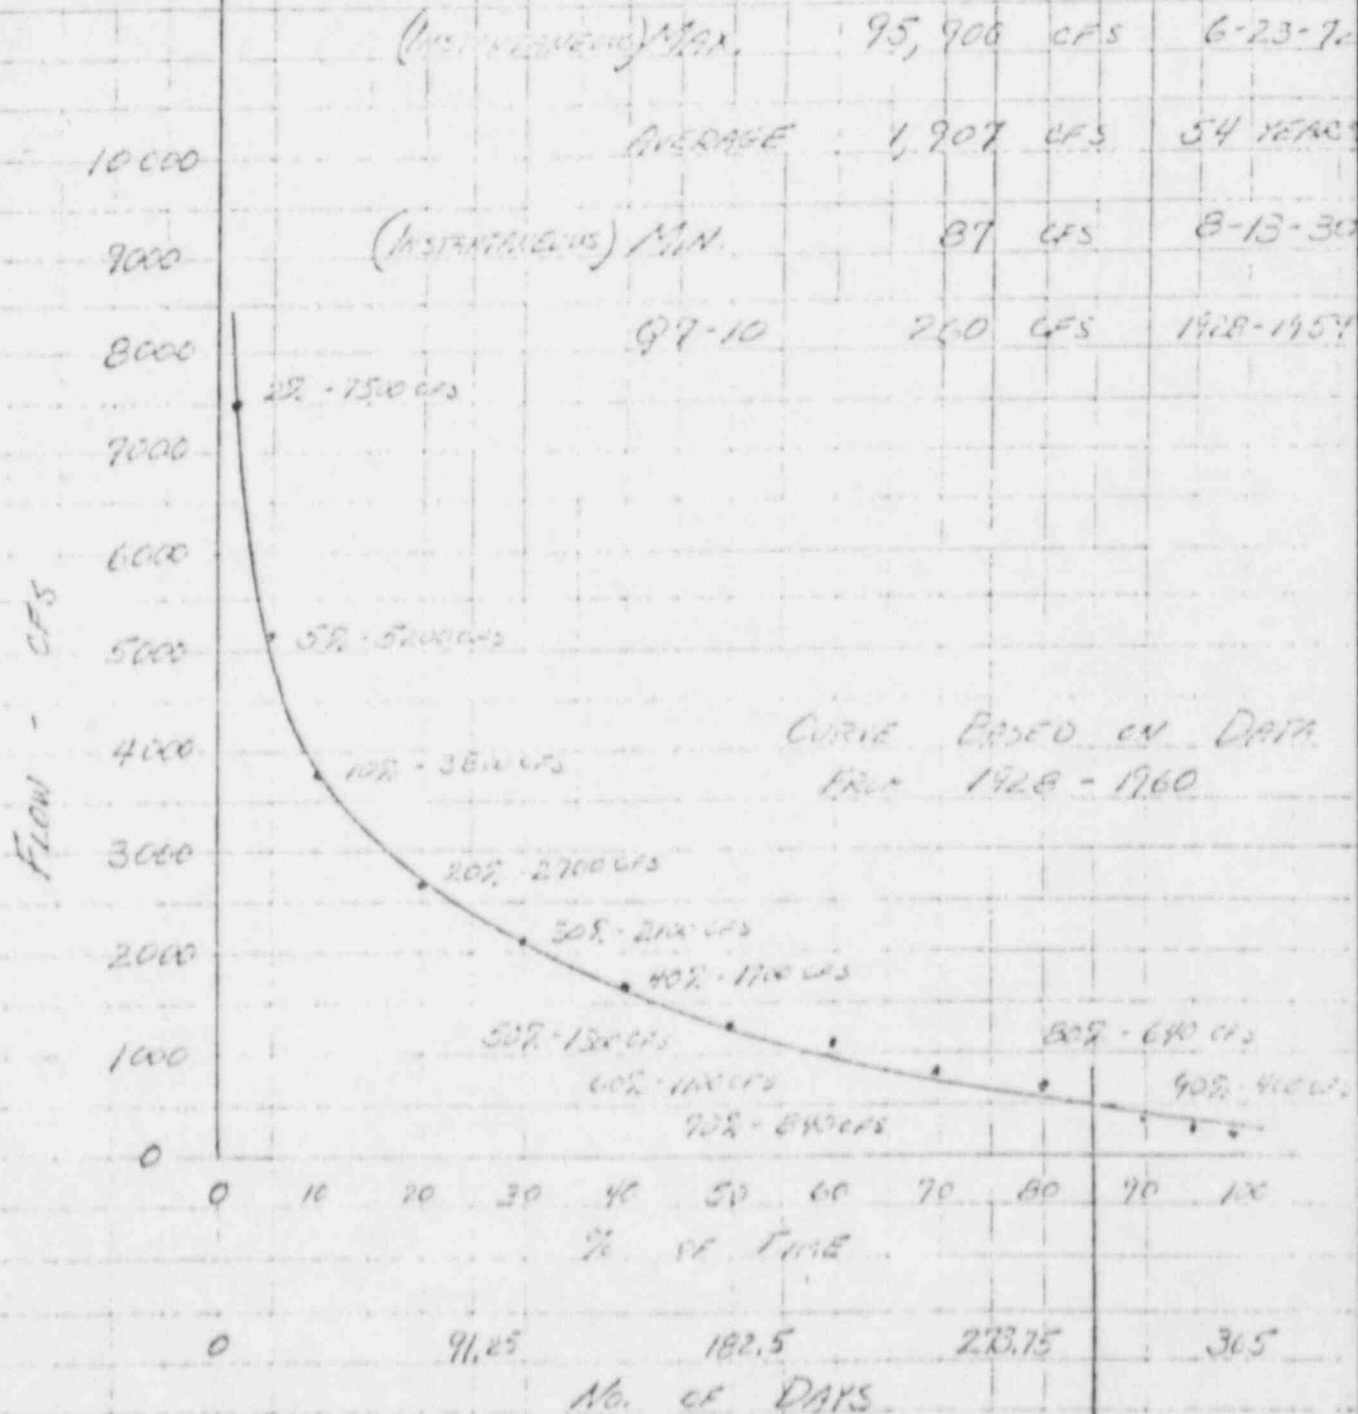 (INSTANTANEOUS) MAX. 95,900 CFS 6-23-72
AVERAGE 1,907 CFS 54 YEARS
(INSTANTANEOUS) MIN. 87 CFS 8-13-30
Q7-10 260 CFS 1928-1959
10000
9000
8000
7000
6000
5000
4000
3000
2000
1000
0
FLOW - CFS
2% - 7500 CFS
5% - 5200 CFS
10% - 3800 CFS
20% - 2700 CFS
30% - 2100 CFS
40% - 1700 CFS
50% - 1300 CFS
60% - 1100 CFS
70% - 840 CFS
80% - 690 CFS
90% - CFS
CURVE BASED ON DATA
FROM 1928 - 1960
0 10 20 30 40 50 60 70 80 90 100
% OF TIME
0 91.25 182.5 273.75 365
NO. OF DAYS